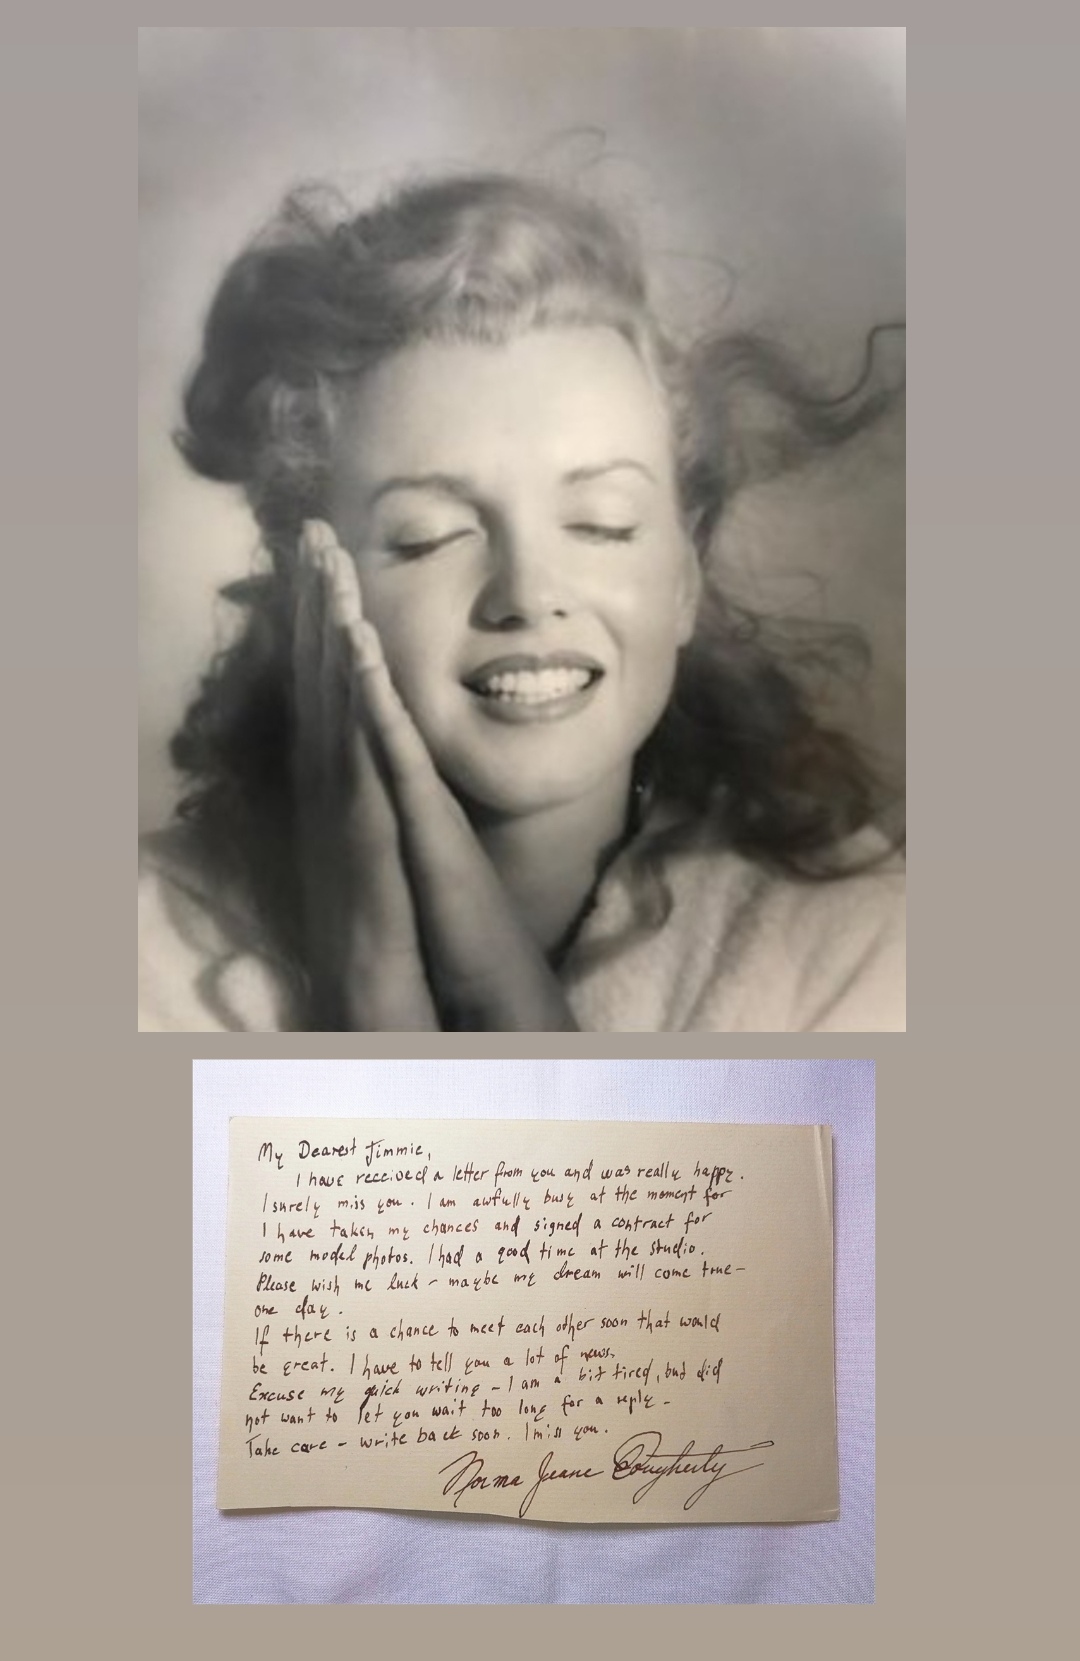 My Dearest Jimmie,
I have received a letter from you and was really happy.
I surely miss you. I am awfully busy at the moment for
I have taken my chances and signed a contract for
some model photos. I had a good time at the studio.
Please wish me luck - maybe my dream will come true -
one day.
If there is a chance to meet each other soon that would
be great. I have to tell you a lot of news.
Excuse my quick writing - I am a bit tired, but did
not want to let you wait too long for a reply -
Take care - write back soon. I miss you.
Norma Jeane Dougherty